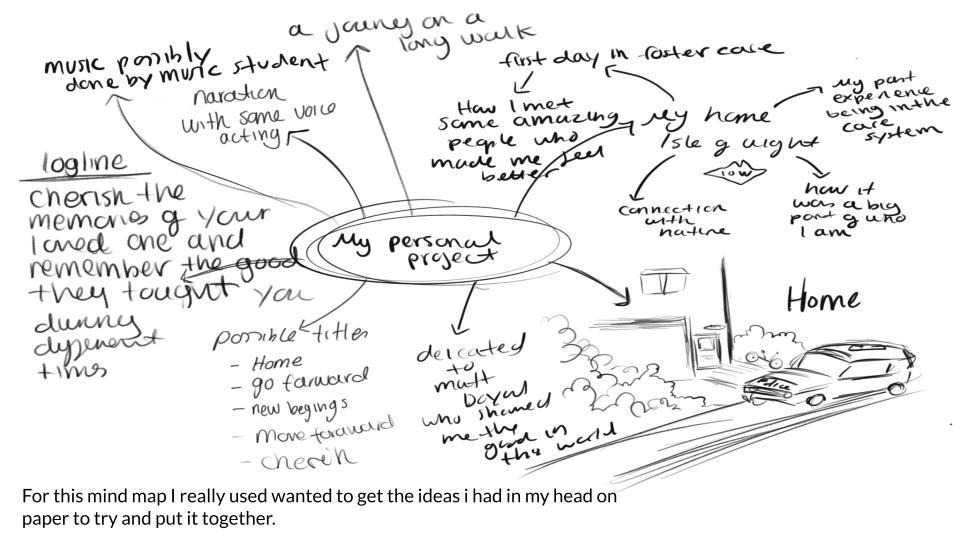 a jouney on a
long walk
music possibly
done by music student
naration
with some voice
acting
first day in foster care
How I met
some amazing
people who
made me feel
better
My home
Isle of wight
IOW
My past
experience
being in the
care
system
connection
with
nature
how it
was a big
part of who
I am
logline
cherish the
memories of your
loved one and
remember the good
they tought you
durring
different
times
My personal
project
possible titles
- Home
- go farward
- new begings
- Move forward
- cherish
deicated
to
matt
who showed
me the
good in
the world
Home
Police
For this mind map I really used wanted to get the ideas i had in my head on
paper to try and put it together.